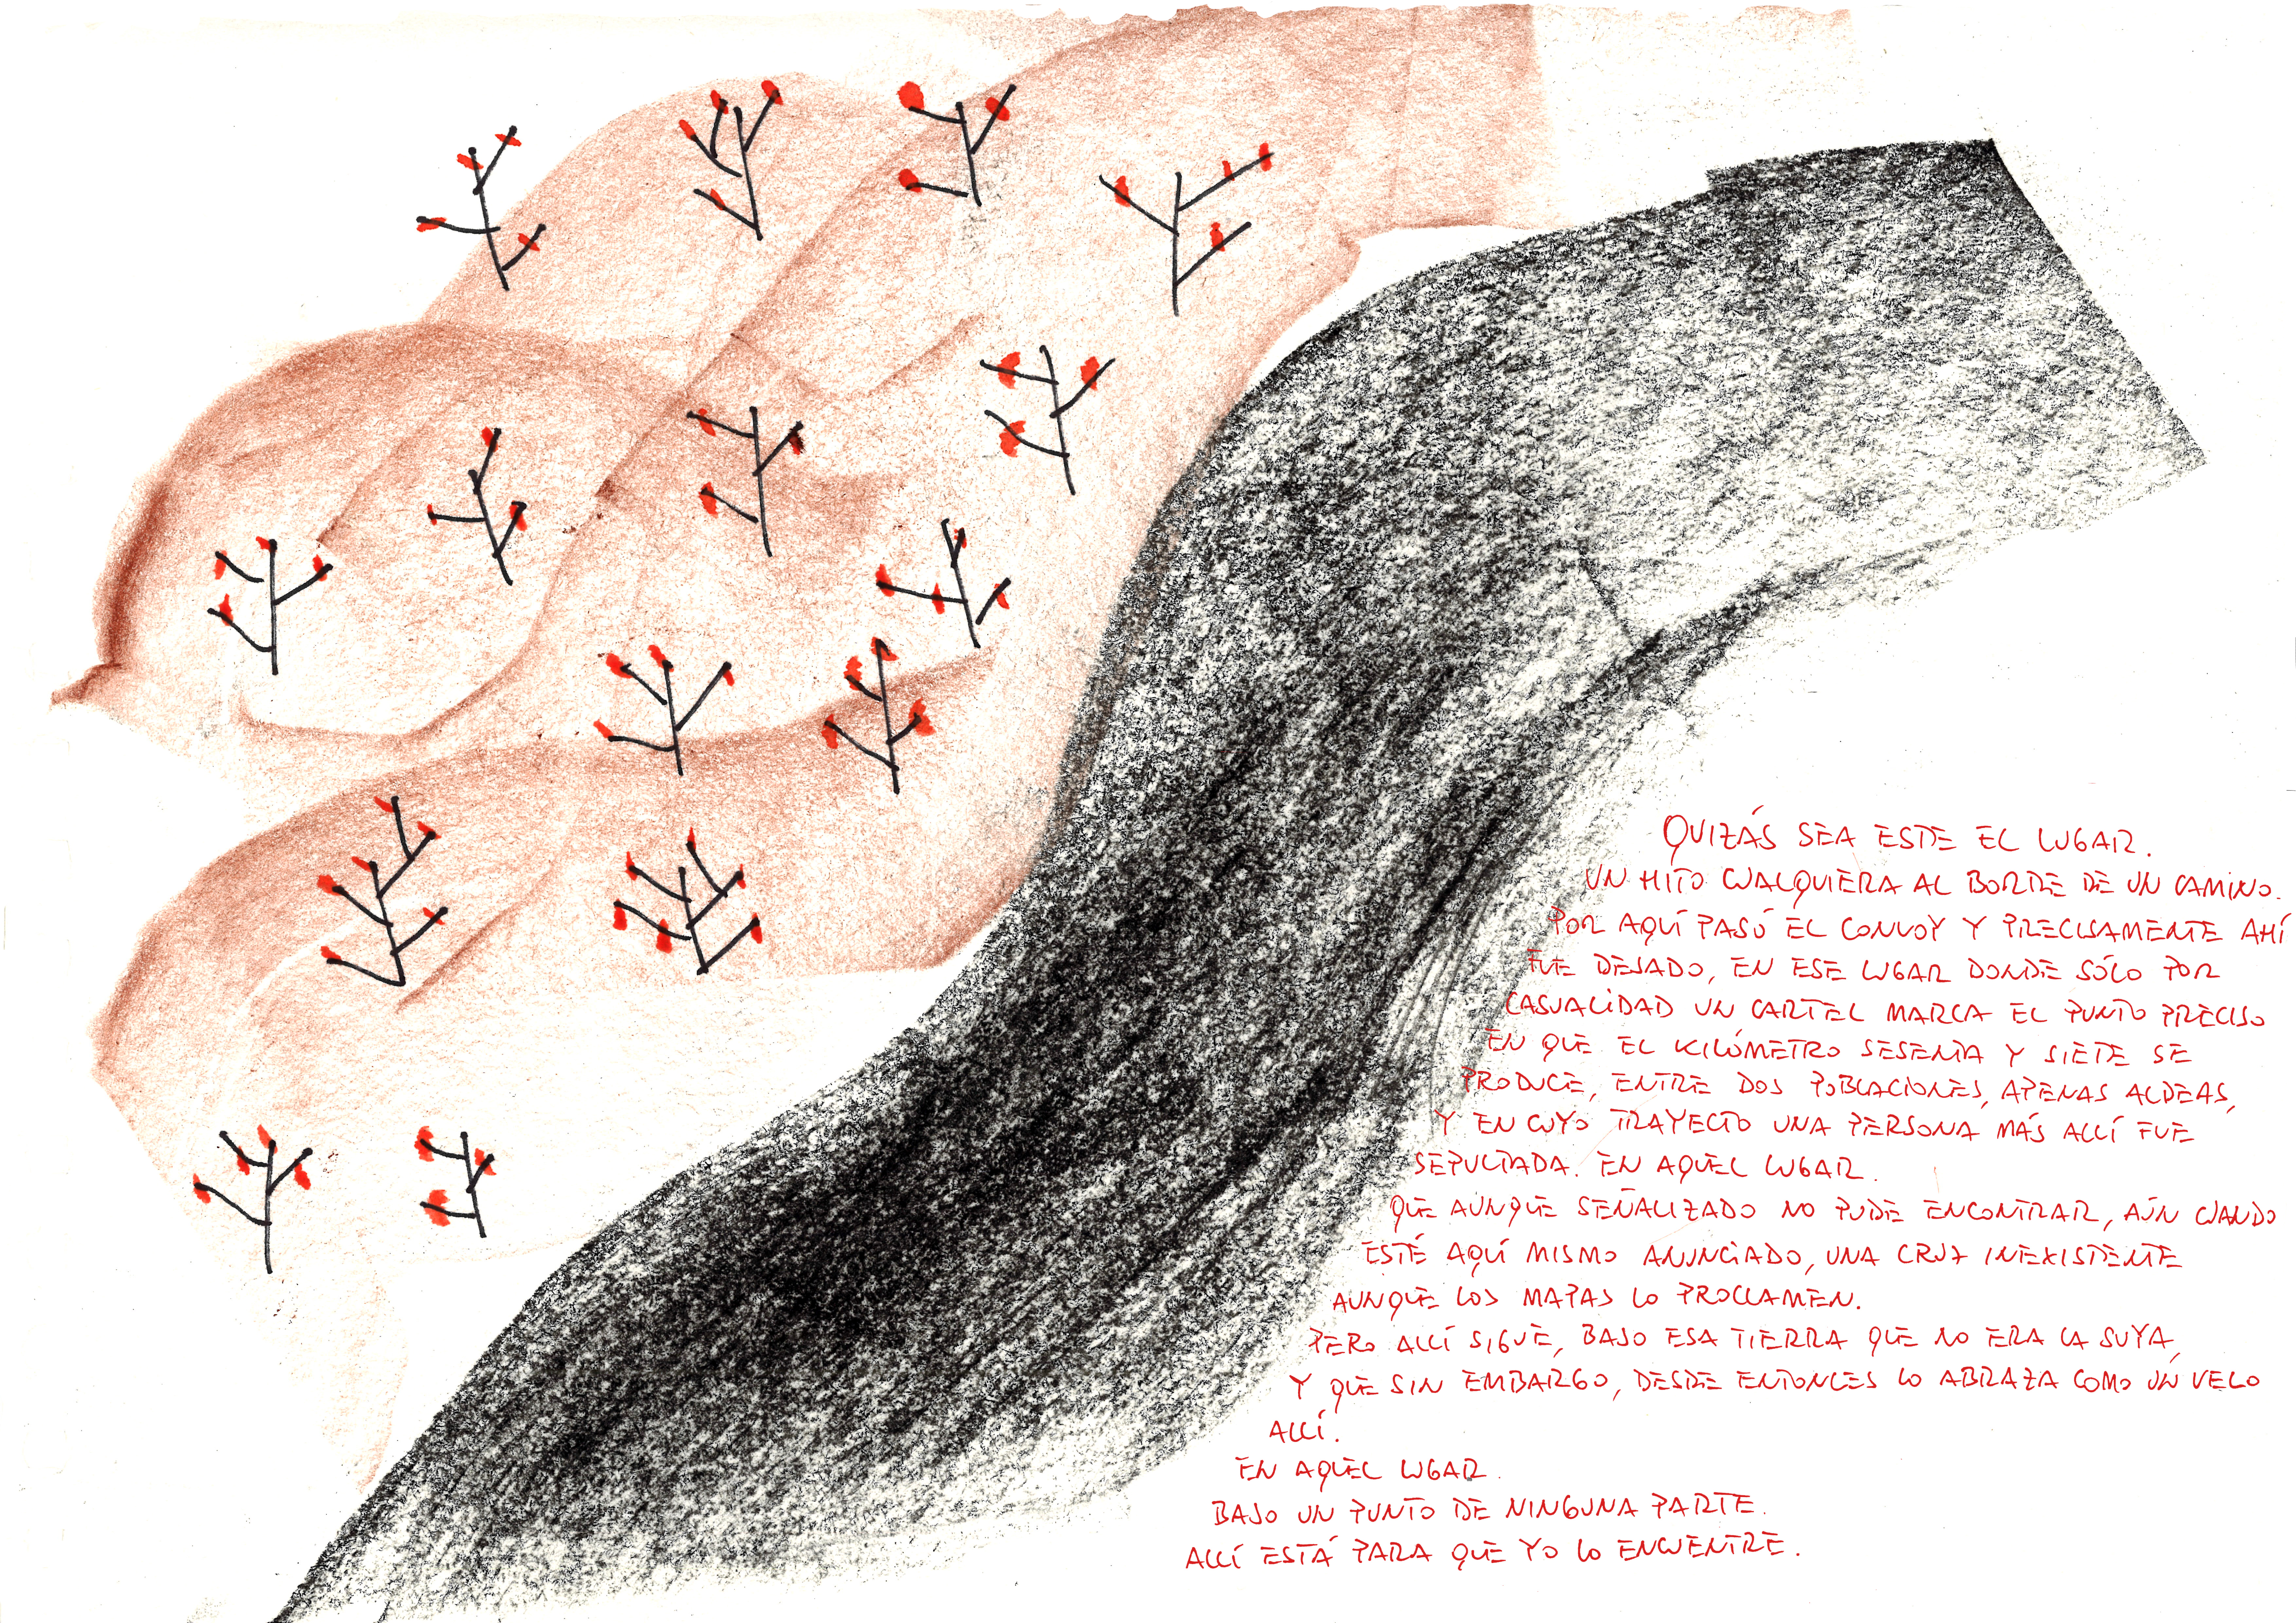 QUIZÁS SEA ESTE EL LUGAR.
UN HITO CUALQUIERA AL BORDE DE UN CAMINO.
POR AQUÍ PASÓ EL CONVOY Y PRECISAMENTE AHÍ
FUE DEJADO, EN ESE LUGAR DONDE SÓLO POR
CASUALIDAD UN CARTEL MARCA EL PUNTO PRECISO
EN QUE EL KILÓMETRO SESENTA Y SIETE SE
PRODUCE, ENTRE DOS POBLACIONES, APENAS ALDEAS,
Y EN CUYO TRAYECTO UNA PERSONA MÁS ALLÍ FUE
SEPULTADA. EN AQUEL LUGAR.
QUE AUNQUE SEÑALIZADO NO PUDE ENCONTRAR, AÚN CUANDO
ESTÉ AQUÍ MISMO ANUNCIADO, UNA CRUZ INEXISTENTE
AUNQUE LOS MAPAS LO PROCLAMEN.
PERO ALLÍ SIGUE, BAJO ESA TIERRA QUE NO ERA LA SUYA,
Y QUE SIN EMBARGO, DESDE ENTONCES LO ABRAZA COMO UN VELO
ALLÍ.
EN AQUEL LUGAR.
BAJO UN PUNTO DE NINGUNA PARTE.
ALLÍ ESTÁ PARA QUE YO LO ENCUENTRE.